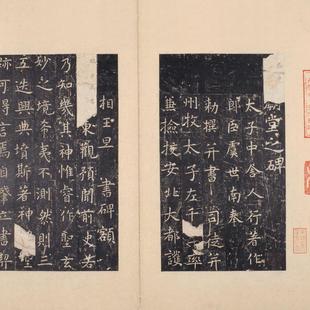 廟堂之碑
太子中舍人行著作
郎臣虞世南奉
勅撰并書 司徒并
州牧太子左千 率
兼撿挍安北大都護
相王旦 書碑額
東觀預聞前史若
乃知幾其神惟睿作聖玄
妙之境希夷不測然則三
五迭興典墳斯著神 聖
跡可得言焉自肇立書契